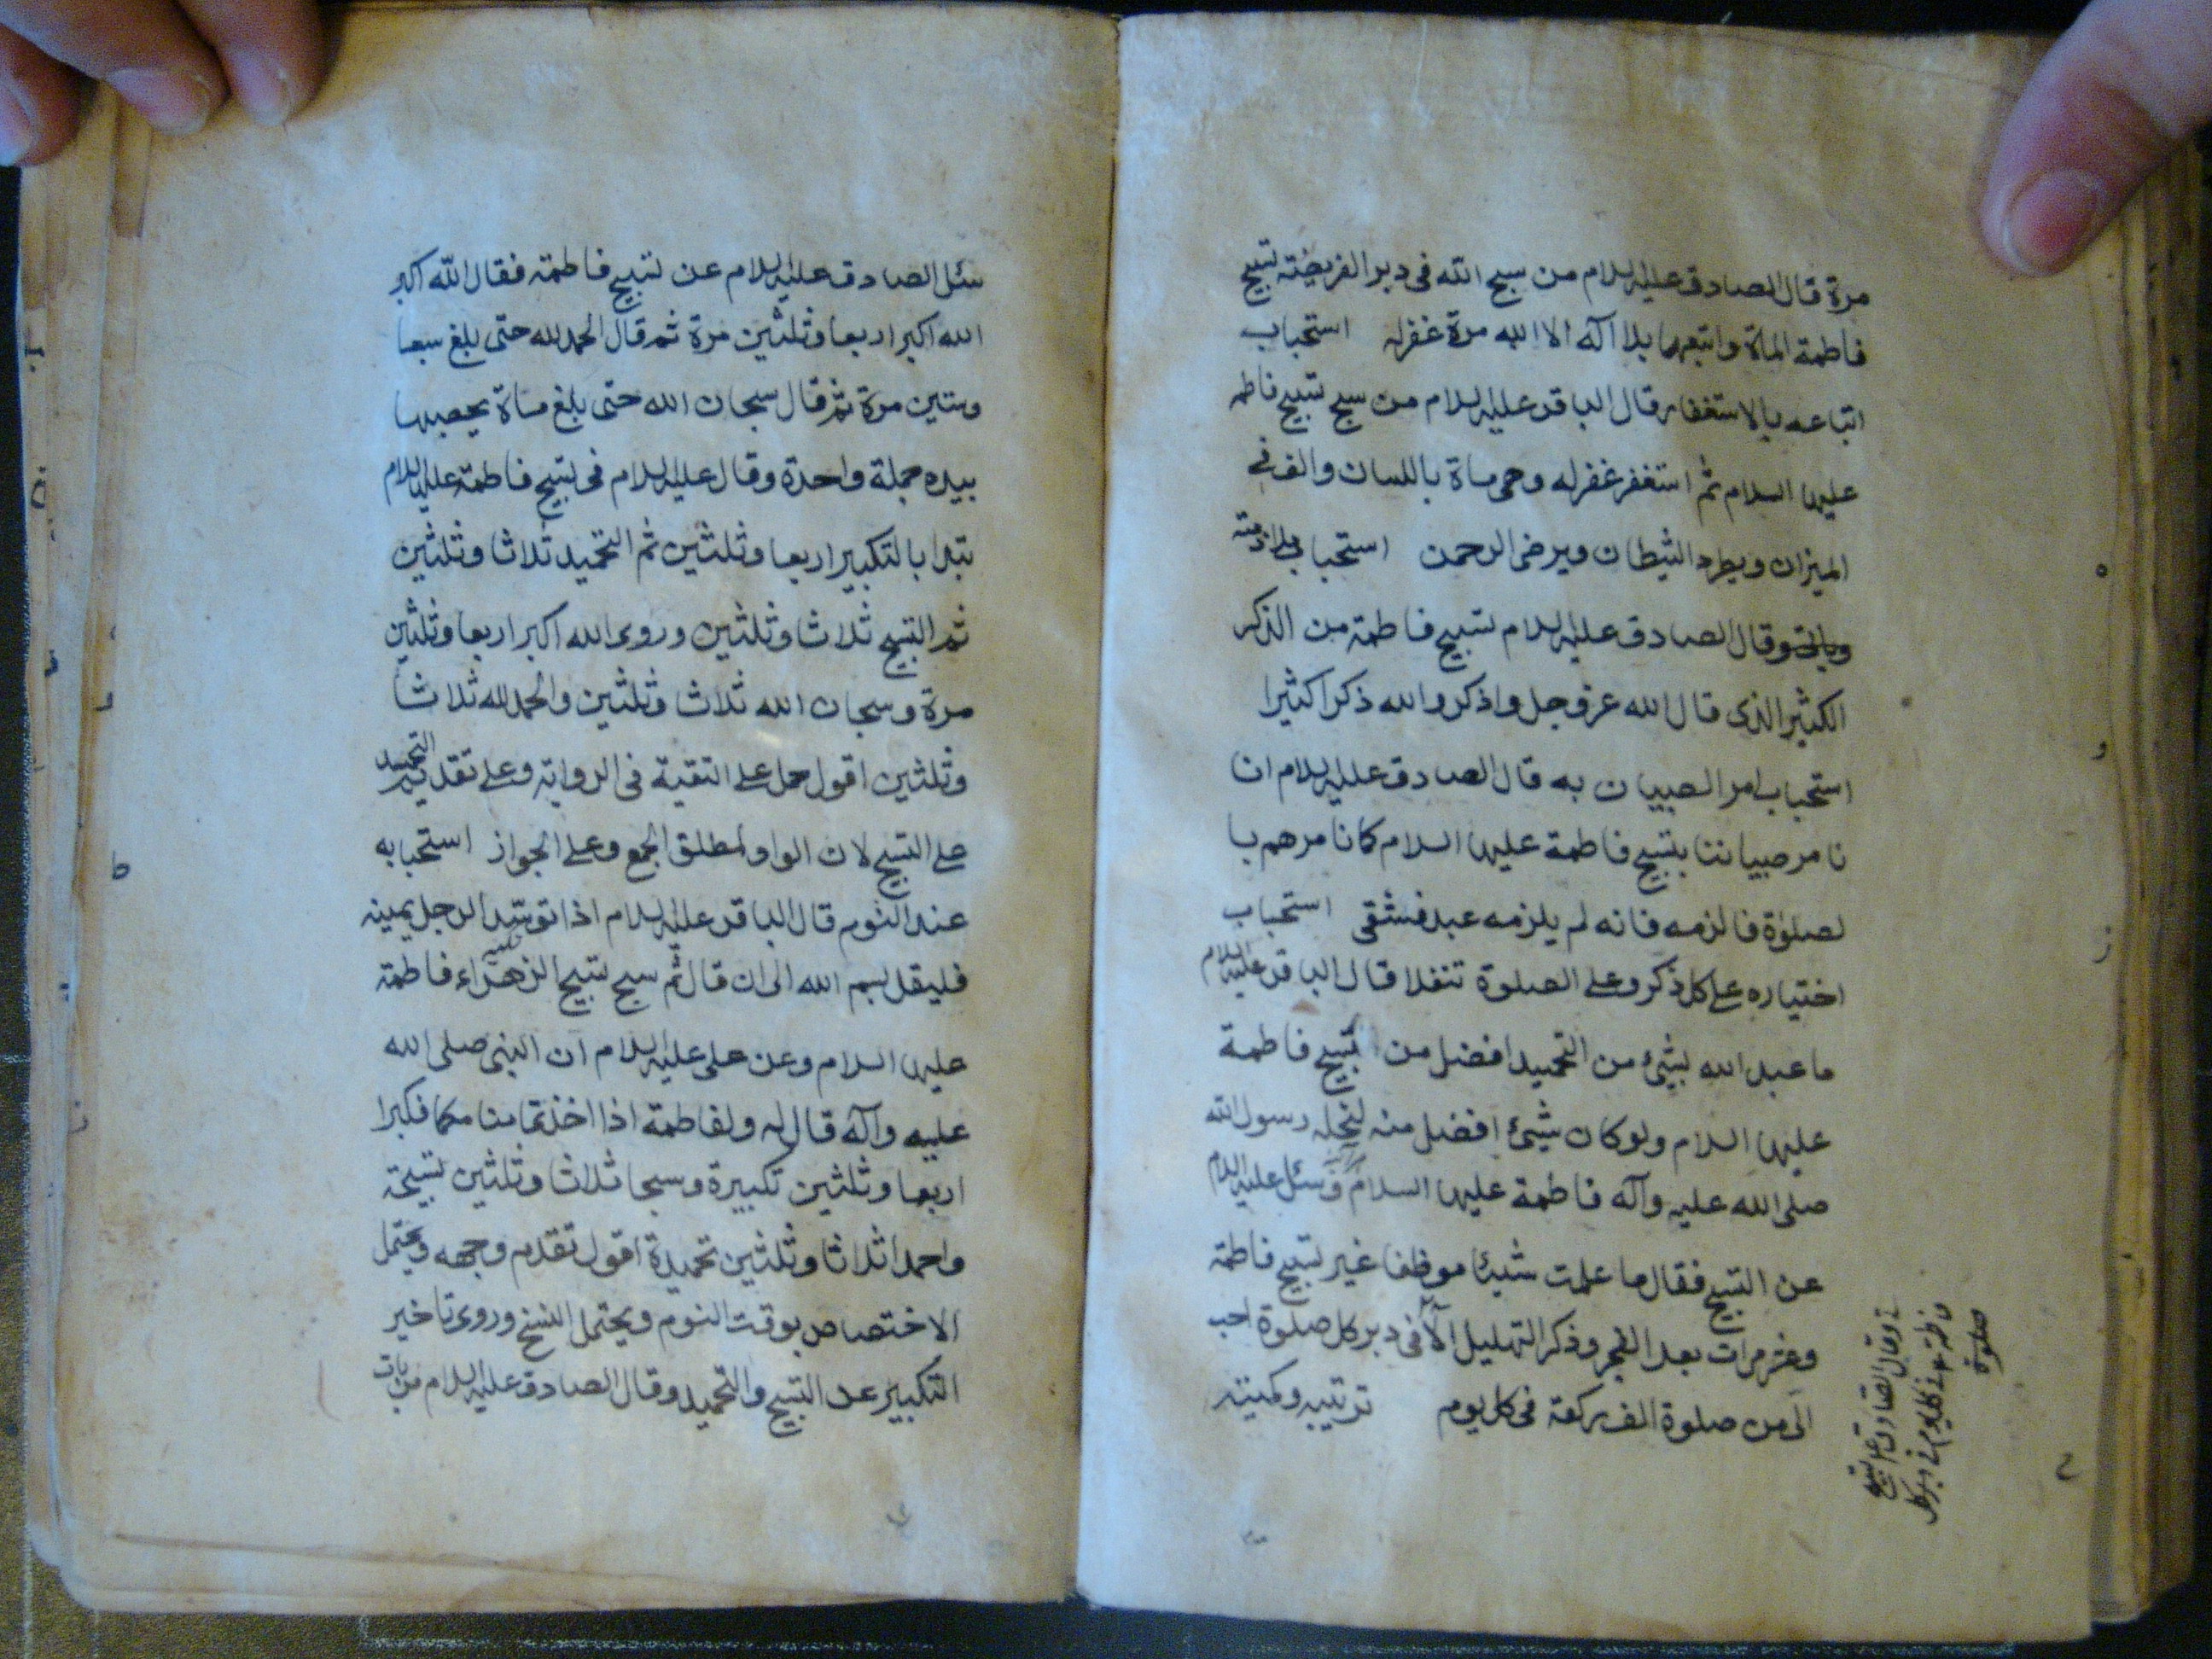 مرة قال الصادق عليه السلام من سبح الله فى دبر الفريضة تسبيح
فاطمة الماة واتبعها بلا اله الا الله مرة غفر له استحباب
اتباعه بالاستغفار قال الباقر عليه السلام من سبح تسبيح فاطمه
عليها السلام ثم استغفر غفر له وهى ماة باللسان والف فى
الميزان ويطرد الشيطان ويرضى الرحمن استحباب ملازمته
وقال الصادق عليه السلام تسبيح فاطمة من الذكر
الكثير الذى قال الله عز وجل واذكروا الله ذكرا كثيرا
استحباب امر الصبيان به قال الصادق عليه السلام انا
نامر صبياننا بتسبيح فاطمة عليها السلام كما نامرهم با
لصلوة فالزمه فانه لم يلزمه عبد فشقى استحباب
اختياره على كل ذكر وعلى الصلوة تنفلا قال الباقر عليه السلام
ما عبد الله بشئ من التحميد افضل من تسبيح فاطمة
عليها السلام ولو كان شئ افضل منه لنحله رسول الله
صلى الله عليه وآله فاطمة عليها السلام وسئل عليه السلام
عن التسبيح فقال ما علمت شيئا موظفا غير تسبيح فاطمة
وعشر مرات بعد الفجر وذكر التهليل الا فى دبر كل صلوة احب
الى من صلوة الف ركعة فى كل يوم ترتيبه وكميته
وقال الصادق ع تسبيح
فاطمة ع فى كل يوم فى دبر كل
صلوة
سئل الصادق عليه السلام عن تسبيح فاطمة فقال الله اكبر
الله اكبر اربعا وثلثين مرة ثم قال الحمد لله حتى بلغ سبعا
وستين مرة ثم قال سبحان الله حتى بلغ ماة يحصيها
بيده جملة واحدة وقال عليه السلام فى تسبيح فاطمة عليها السلام
تبدا بالتكبير اربعا وثلثين ثم التحميد ثلاثا وثلثين
ثم التسبيح ثلاثا وثلثين وروى الله اكبر اربعا وثلثين
مرة وسبحان الله ثلاث وثلثين والحمد لله ثلاثا
وثلثين اقول حمل على التقية فى الرواية وعلى تقديم التحميد
على التسبيح لان الواو لمطلق الجمع وعلى الجواز استحبابه
عند النوم قال الباقر عليه السلام اذا توسد الرجل يمينه
فليقل بسم الله الى ان قال ثم سبح تسبيح الزهراء فاطمة
عليها السلام وعن على عليه السلام ان النبى صلى الله
عليه وآله قال له ولفاطمة اذا اخذتما منامكما فكبرا
اربعا وثلثين تكبيرة وسبحا ثلاثا وثلثين تسبيحة
واحمدا ثلاثا وثلثين تحميدة اقول تقدم وجهه ويحتمل
الاختصاص بوقت النوم ويحتمل النسخ وروى تاخير
التكبير عن التسبيح والتحميد وقال الصادق عليه السلام من بات